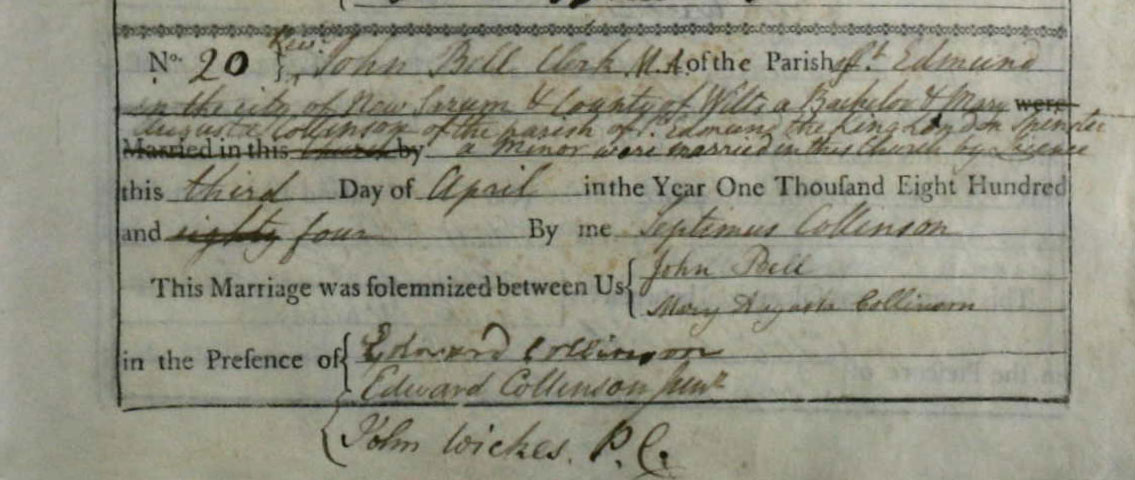 No. 20 Revd. John Bell Clerk M.A. of the Parish of St. Edmund
in the city of New Sarum & County of Wilts a Bachelor & Mary were
Augusta Collinson of the parish of St. Edmund the King London Spinster
Married in this Church by a Minor were married in this Church by Licence
this third Day of April in the Year One Thouſand Eight Hundred
and eighty four By me Septimus Collinson
This Marriage was ſolemnized between Us { John Bell
Mary Augusta Collinson
in the Preſence of { Edward Collinson
Edward Collinson Junr
John Wickes. P.C.